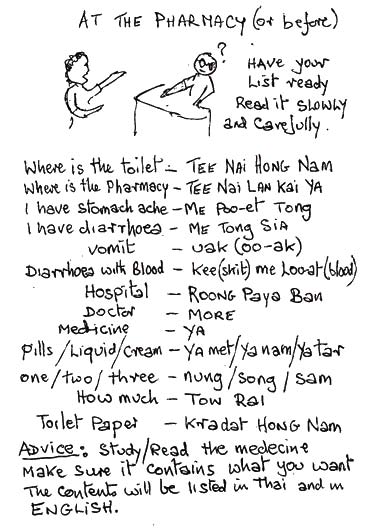 AT THE PHARMACY (or before)
?
HAVE your
List ready
Read it SLOWLY
and carefully.
Where is the toilet - TEE NAI HONG NAM
Where is the Pharmacy - TEE NAI LAN KAI YA
I have stomach ache - ME POO-ET TONG
I have diarrhoea - ME TONG SIA
vomit - UAK (OO-AK)
Diarrhoea with Blood - Kee (shit) me Loo-at (blood)
Hospital - ROONG PAYA BAN
Doctor - MORE
Medicine - YA
Pills/Liquid/Cream - YA met/ya nam/ya tar
one/two/three - nung/song/sam
How much - TOW RAI
Toilet Paper - Kradat HONG NAM
ADVICE: Study/Read the medecine
Make sure it contains what you want
The contents will be listed in Thai and in
ENGLISH.